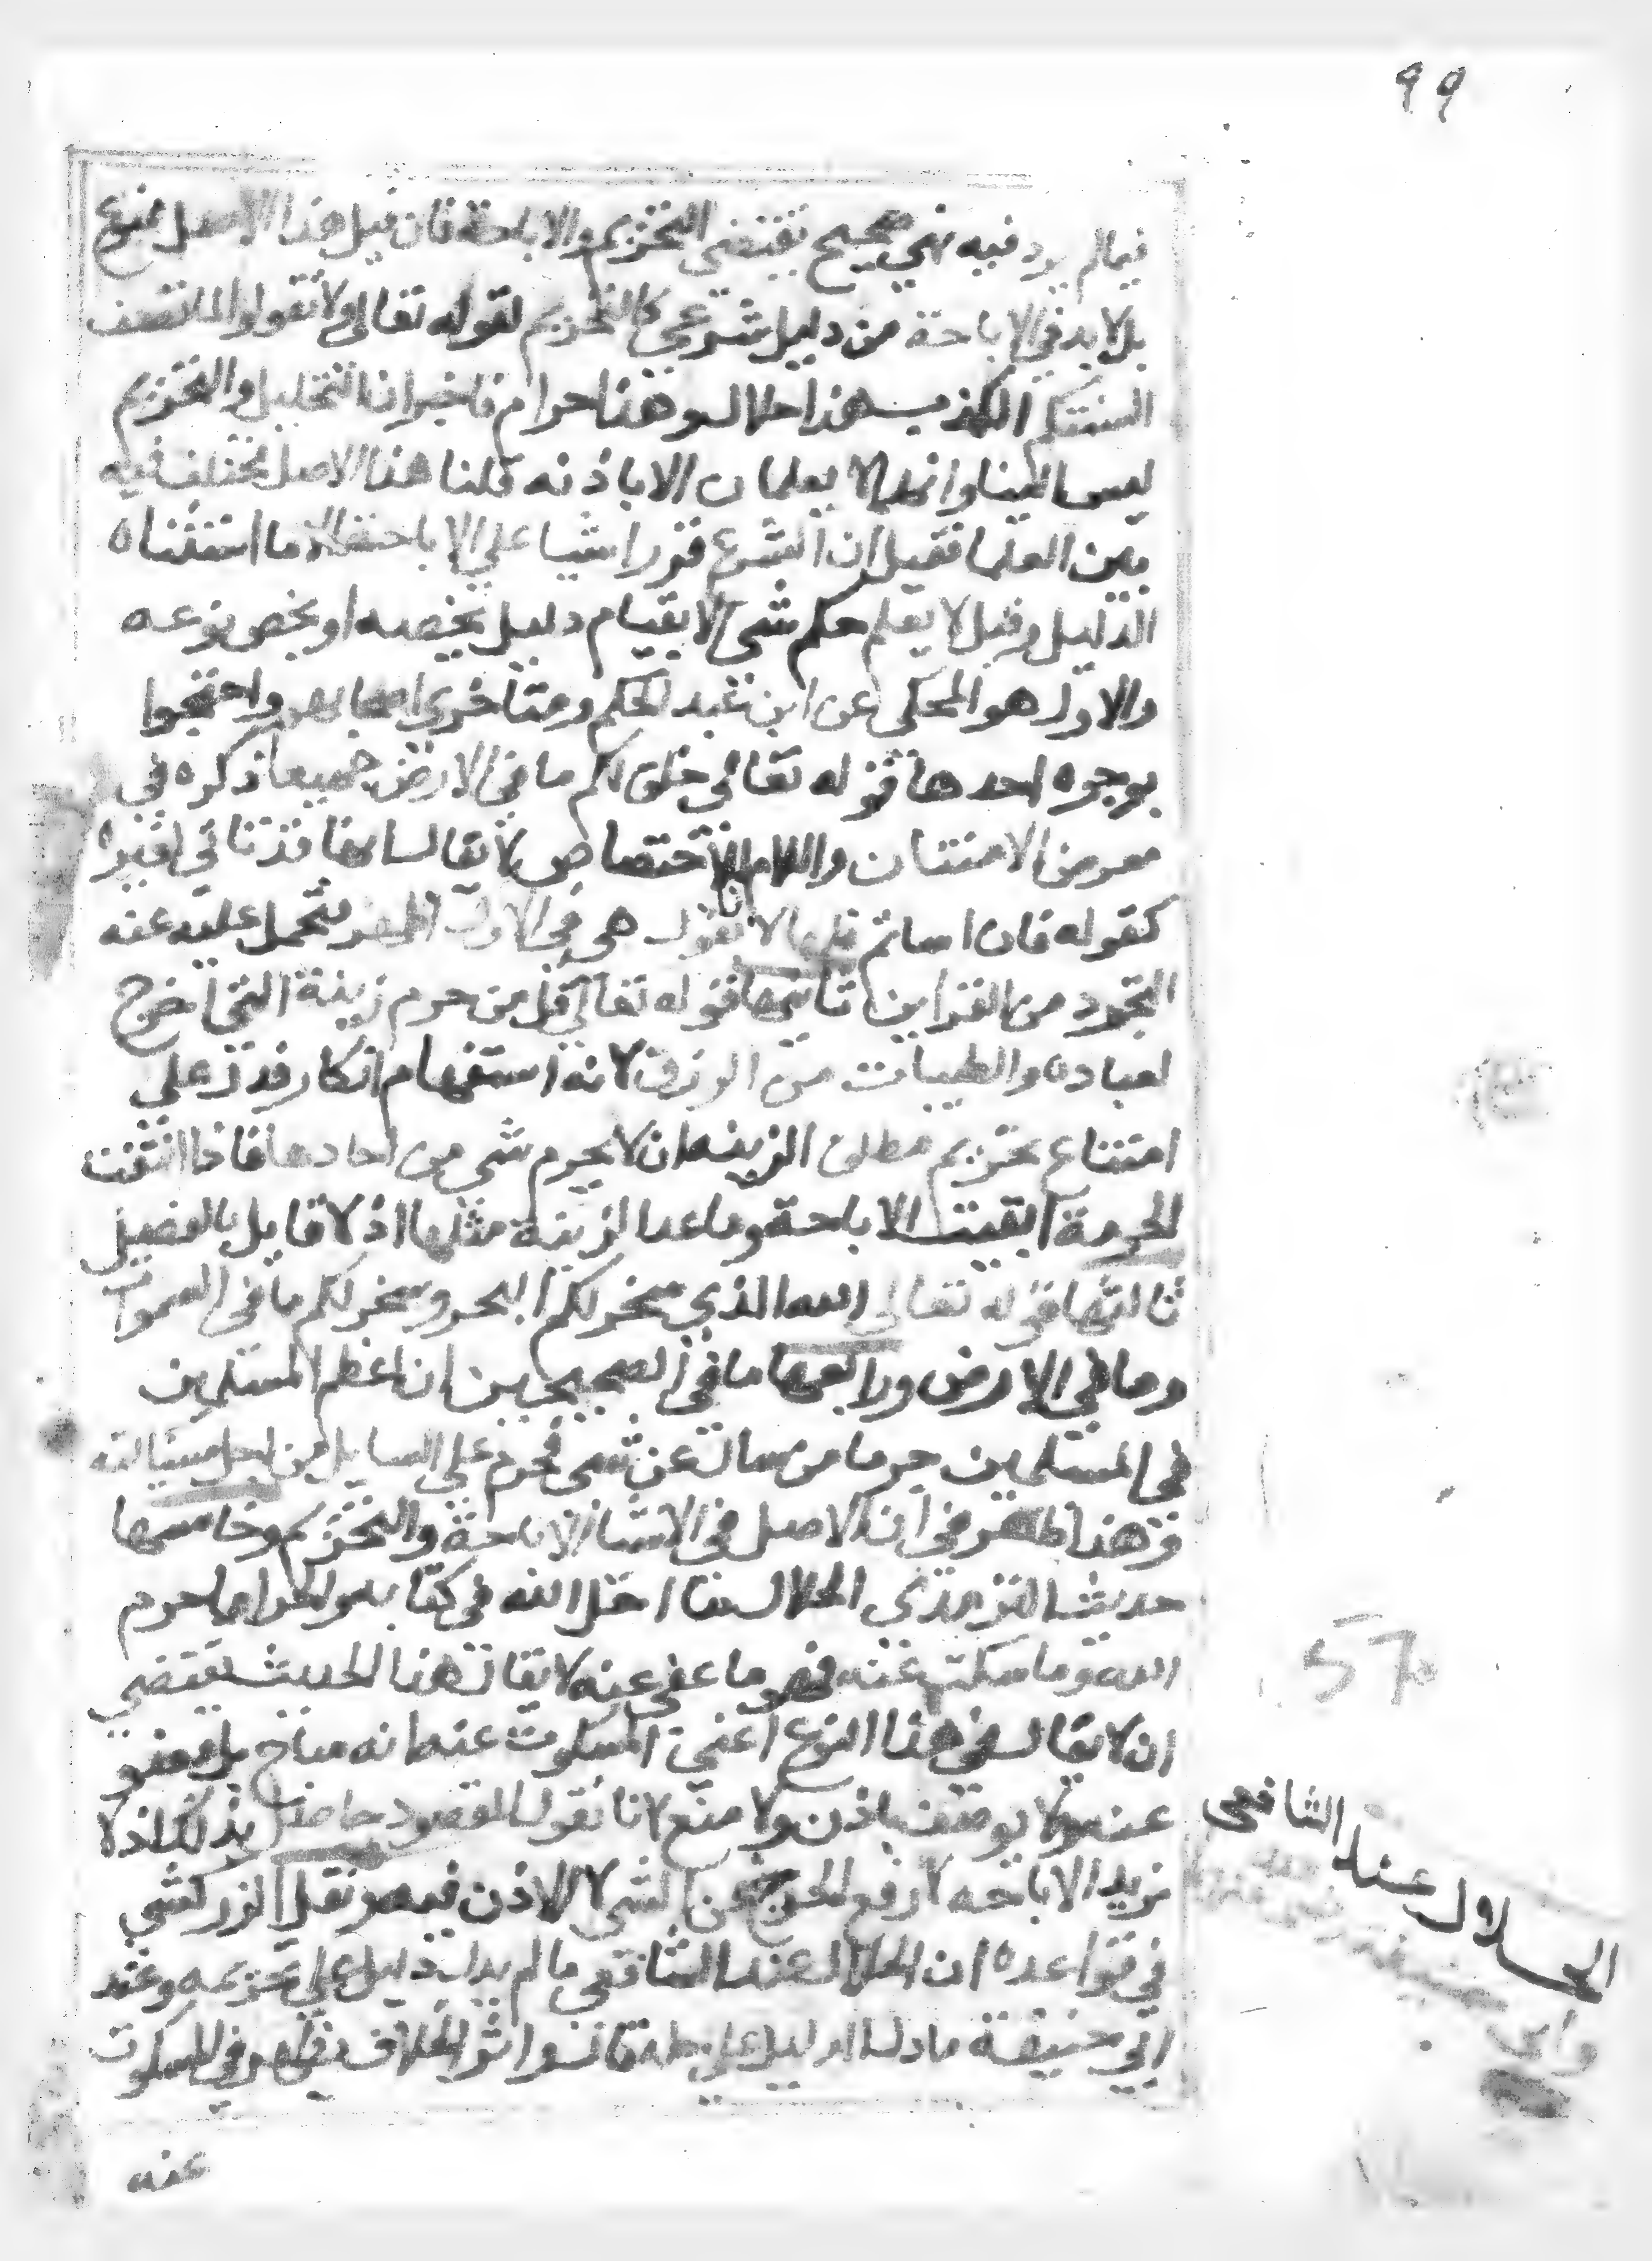 ٩٩
فيما لم يرد فيه نهي صحيح يقتضي التحريم والاباحة فان قيل هذا الاصل ممنوع
بل لا بد في الاباحة من دليل شرعي كالتحريم لقوله تعالى ولا تقولوا لما تصف
السنتكم الكذب هذا حلال وهذا حرام فاخبر ان التحليل والتحريم
ليس الينا وانما لا يعلمان الا باذنه قلنا هذا الاصل مختلف فيه
بين العلما فقيل ان الشرع قرر الاشيا على الاباحة الا ما استثناه
الدليل وقيل لا يعلم حكم شي الا بقيام دليل يخصه او يخص نوعه
والاول هو المحكي عن ابن عبد الحكم ومتاخري اصحابه واحتجوا
بوجوه احدها قوله تعالى خلق لكم ما في الارض جميعا ذكره في
معرض الامتنان واللام للاختصاص لا يقال
كقوله فان اساتم فلها لا نقول هي في الاول اظهر فتحمل عليه عند
التجرد من القراين ثانيها قوله تعالى قل من حرم زينة التي اخرج
لعباده والطيبات من الرزق لانه استفهام انكار فدل على
امتناع تحريم مطلق الزينه ان لا يحرم شي من احادها فاذا انتفت
الحرمة بقيت الاباحة وما عدا الزينة مثلها اذ لا قايل بالفصل
ثالثها قوله تعالى الله الذي سخر لكم البحر وسخر لكم ما في السموات
وما في الارض ورابعها ما في الصحيحين ان اعظم المسلمين
في المسلمين جرما من سال عن شي فحرم على السايل من اجل مسالته
وهذا ظاهر في ان الاصل في الاشيا الاباحة والتحريم وخامسها
حديث الترمذي الحلال ما احل الله في كتابه والحرام ما حرم
الله وما سكت عنه فهو ما عفي عنه لا يقال هذا الحديث يقتضي
ان لا يقال في هذا النوع اعني المسكوت عنه انه مباح بل معفو
عنه ولا يوصف باذن ولا منع لانا نقول المقصود حاصل بذلك اذ لا
نريد الاباحه الا رفع الحرج عن الشي لا الاذن فيه ونقل الزركشي
في قواعده ان الحلال عند الشافعي ما لم يدل دليل على تحريمه وعند
ابي حنيفة ما دل الدليل على حله قال واثر الخلاف يظهر في المسكوت
عنه
الحلال عند الشافعي
وابي حنيفة